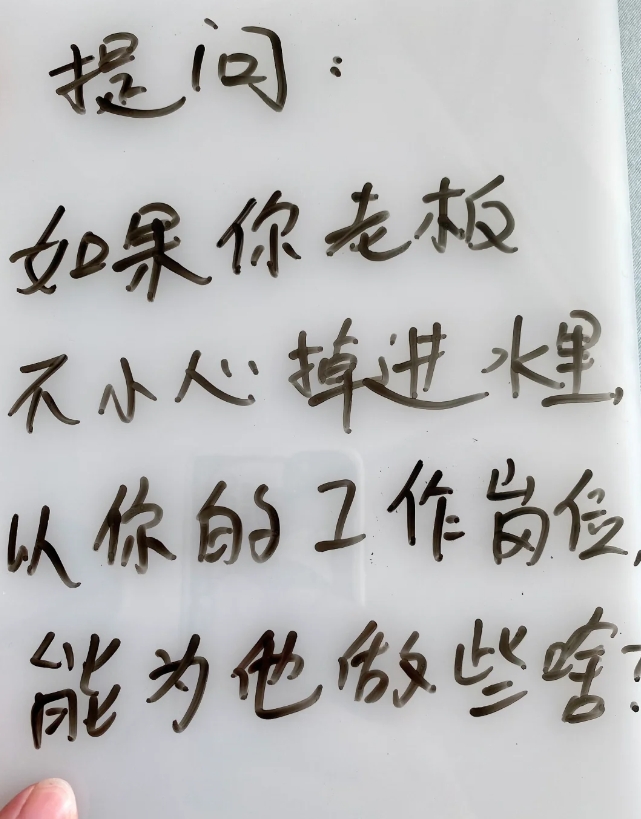 提问：
如果你老板
不小心掉进水里，
从你的工作岗位，
能为他做些啥？